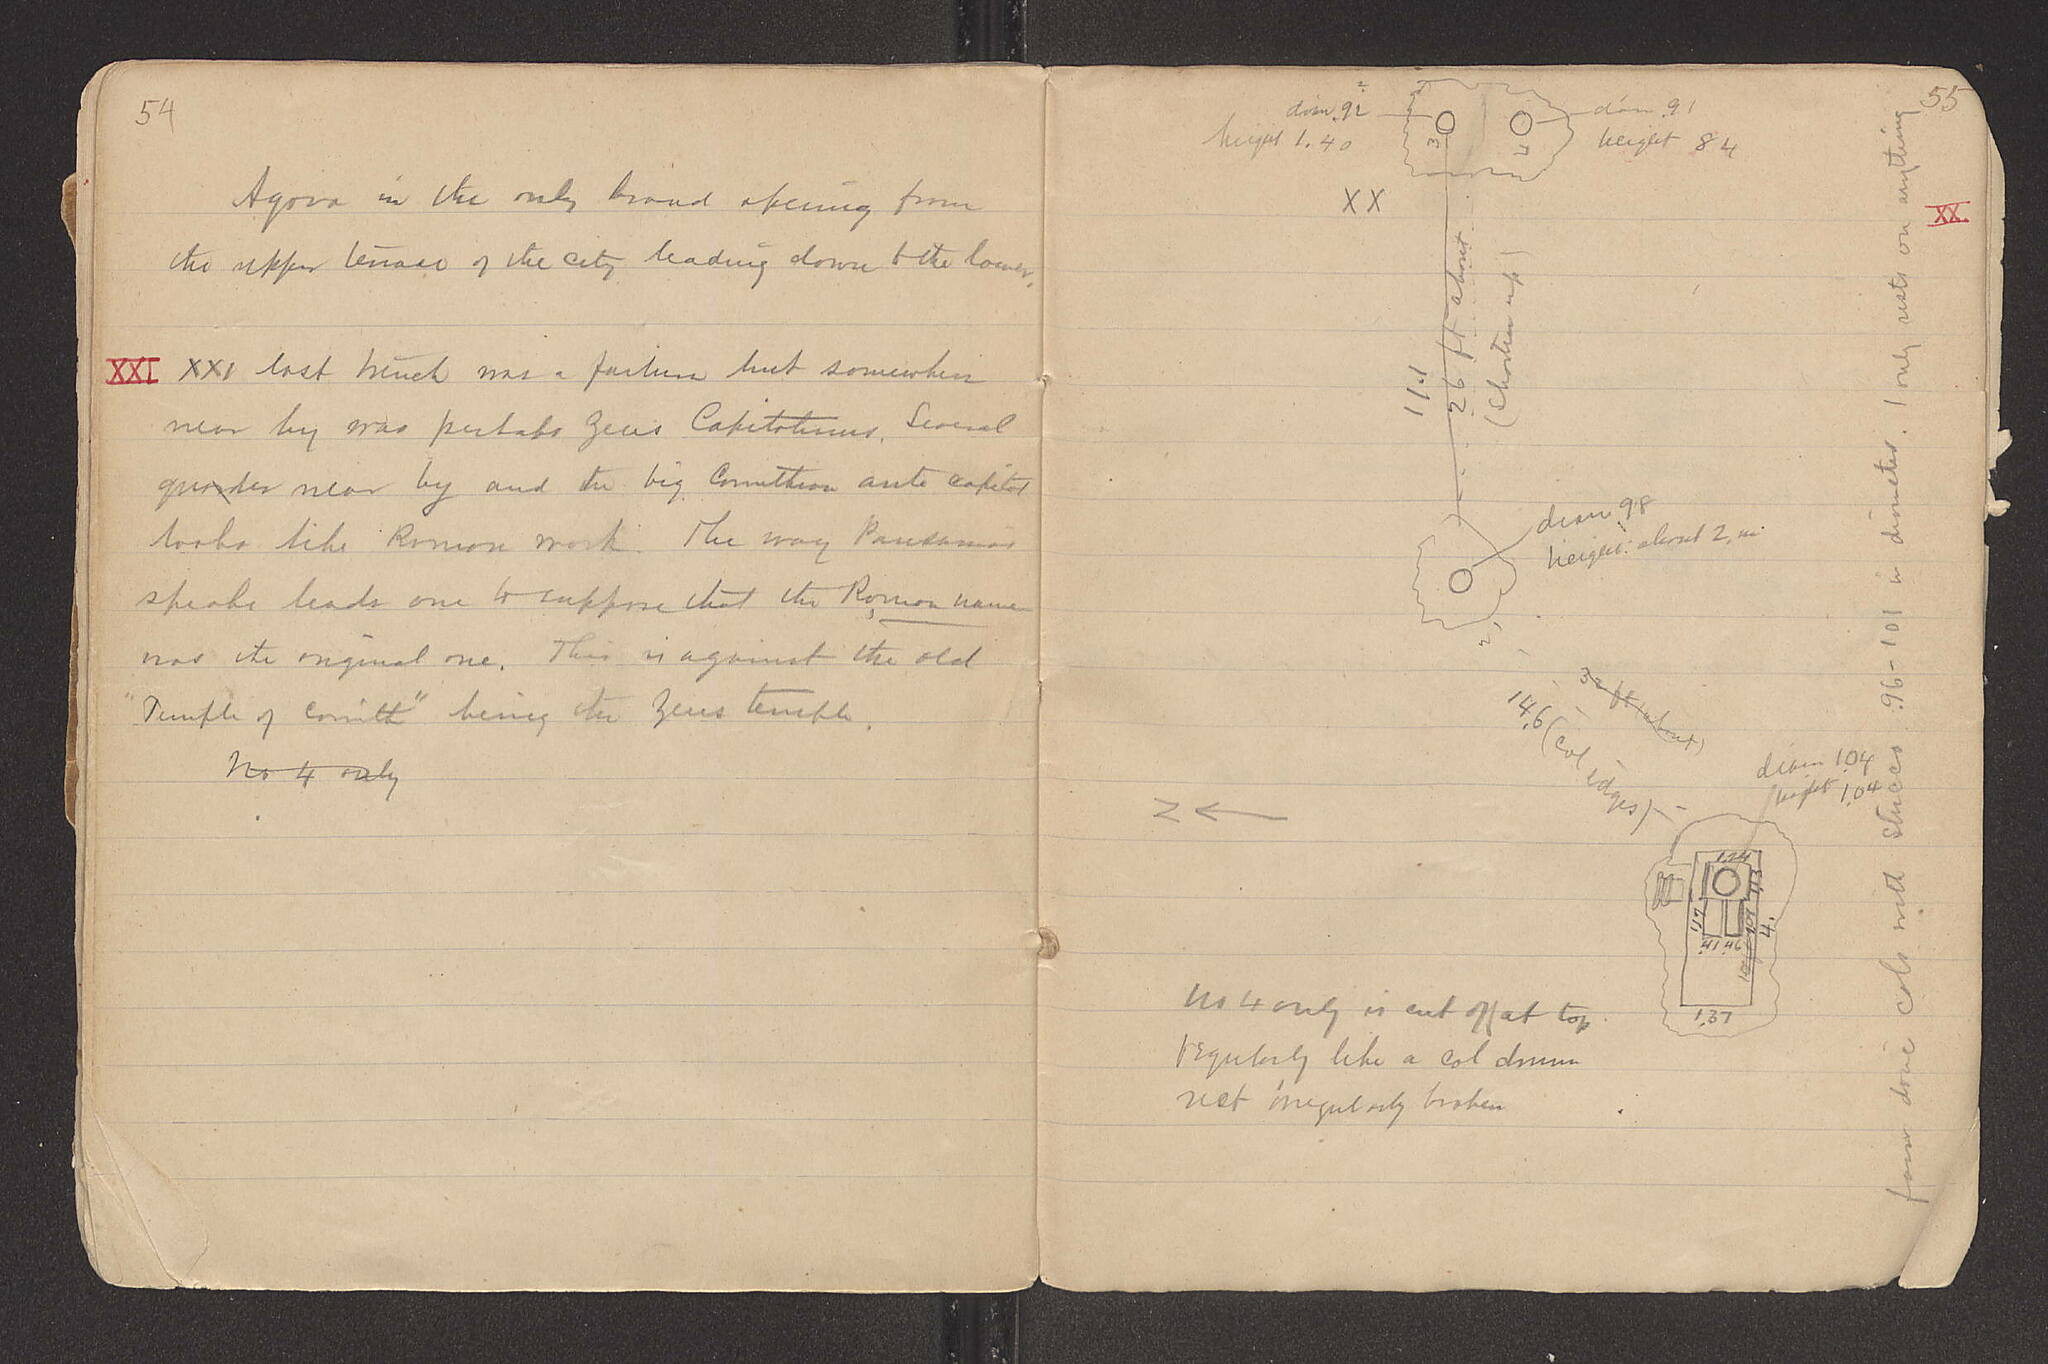 54
Agora in the only broad opening from
the upper terrace of the city leading down to the lower.
XXI XXI last trench was a failure but somewhere
near by was perhaps Zeus Capitolinus. Several
near by and the big Corinthian ante capital
looks like Roman work. The way Pausanias
speaks leads one to suppose that the Roman name
was the original one. This is against the old
"Temple of Corinth" being the Zeus temple.
No 4 only
55
diam .92
height 1.40
3
4
diam .91
height 84
XX
XX.
11.1
26 ft about
(shorter up)
diam .98
height: about 2. m
2,
32 ft (about)
14.6 (col edges)
diam 1.04
height 1.04
N
1.24
1.13
1.17
1.01
4.
.41 .46
1.37
No 4 only is cut off at top
regularly like a col drum
rest irregularly broken
four doric cols with stucco .96-1.01 in diameter. 1 only rests on anything